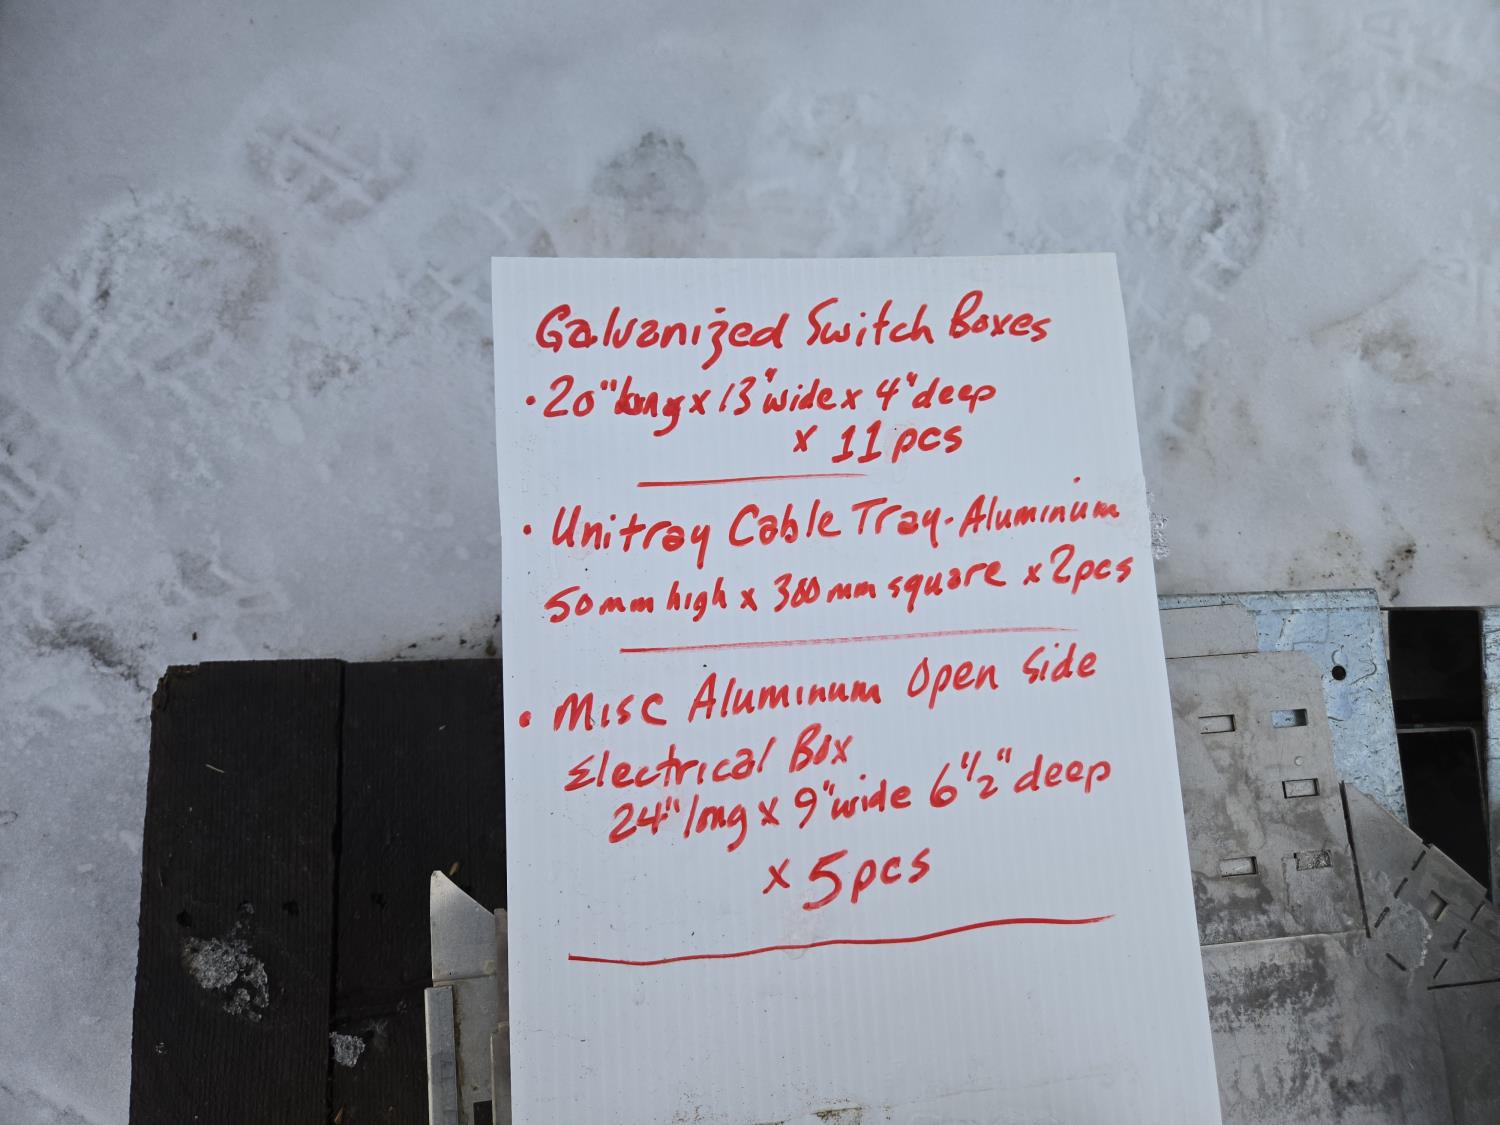 Galvanized Switch Boxes
• 20" long x 13" wide x 4" deep
x 11 pcs
• Unitray Cable Tray - Aluminum
50mm high x 300mm square x 2pcs
• Misc Aluminum Open Side
Electrical Box
24" long x 9" wide 6 1/2" deep
x 5 pcs